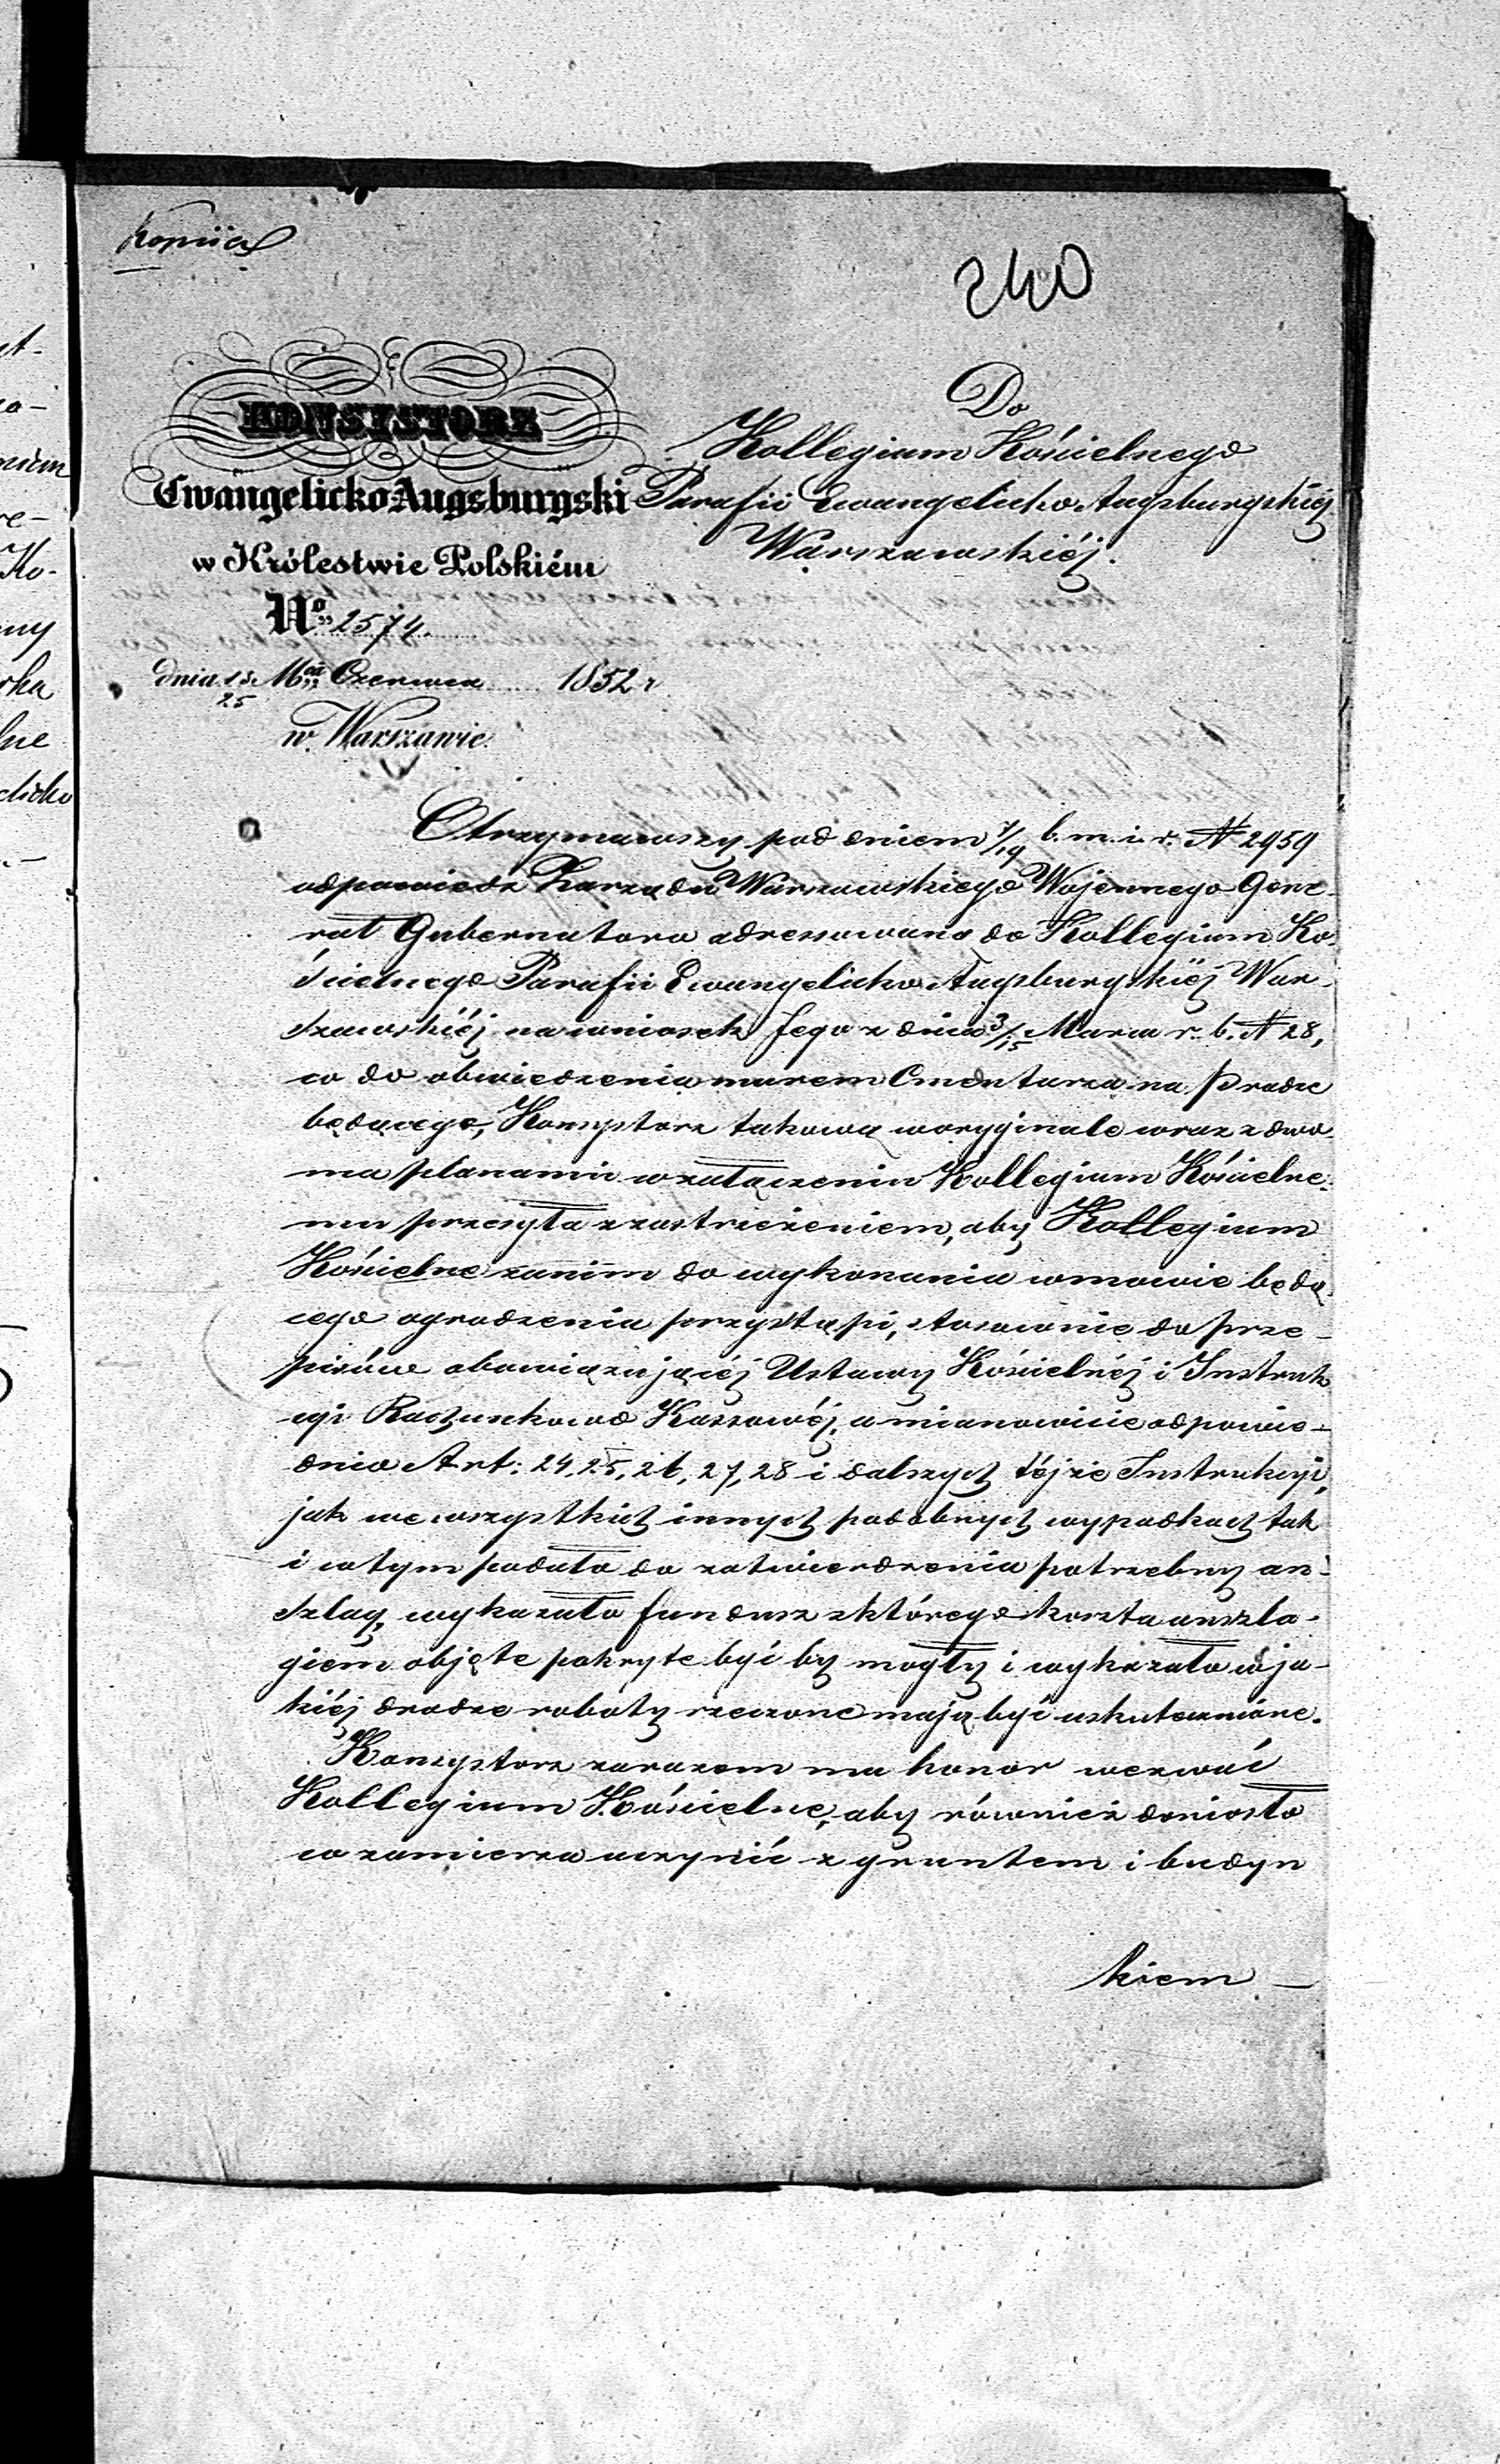 Kopiia
240
KONSYSTORZ
Ewangelicko Augsburgski
w Królestwie Polskiém
No 2574.
dnia 13/25 Mca Czerwca 1852 r
w Warszawie.
Do
Kollegium Kościelnego
Parafii Ewangelicko Augsburgskiéj
Warszawskiéj.
Otrzymawszy pod dniem 7/19 b. m. i. r. N 2959
odpowiedz Zarządu Warszawskiego Wojennego Gene-
rał Gubernatora adressowaną do Kollegium Ko-
ścielnego Parafii Ewangelicko Augsburgskiéj War-
szawskiéj na wniosek Jego z dnia 3/15 Marca r. b. N 28,
co do obwiedzenia murem Cmentarza na Pradze
będącego, Konsystorz takową w oryginale wraz z dwo-
ma planami w załączeniu Kollegium Kościelne-
mu przesyła z zastrzeżeniem, aby Kollegium
Kościelne zanim do wykonania w mowie będą-
cego ogrodzenia przystąpi, stosownie do prze-
pisów obowiązującéj Ustawy Kościelnéj i Instruk
cyi Rachunkowo Kassowéj, a mianowicie odpowie-
dnio Art: 24, 25, 26, 27, 28 i dalszych téjże Instrukcyi,
jak we wszystkich innych podobnych wypadkach tak
i w tym podało do zatwierdzenia potrzebny an-
szlag, wykazało fundusz z którego koszta anszla-
giem objęte pokryte być by mogły i wykazało w ja-
kiéj drodze roboty rzeczone mają być uskutecznione.
Konsystorz zarazem ma honor wezwać
Kollegium Kościelne, aby również doniosło
co zamierza uczynić z gruntem i budyn
kiem —